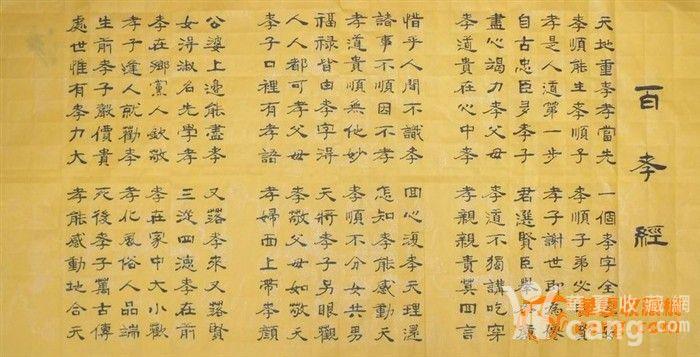 百孝經
天地重孝孝當先 一個孝字全家安
孝順能生孝順子 孝順子弟必賢
孝是人道第一步 孝子謝世即為
自古忠臣多孝子 君選賢臣舉孝廉
盡心竭力孝父母 孝道不獨講吃穿
孝道貴在心中孝 孝親親責莫回言
惜乎人間不識孝 回心復孝天理還
諸事不順因不孝 怎知孝能感動天
孝道貴順無他妙 孝順不分女共男
福祿皆由孝字得 天將孝子另眼觀
人人都可孝父母 孝敬父母如敬天
孝子口裡有孝語 孝婦面上帶孝顏
公婆上邊能盡孝 又落孝來又落賢
女得淑名先學孝 三從四德孝在前
孝在鄉黨人欽敬 孝在家中大小歡
孝子逢人就勸孝 孝化風俗人品端
生前孝子聲價貴 死後孝子萬古傳
處世惟有孝力大 孝能感動地合天
華夏收藏網
cang.com